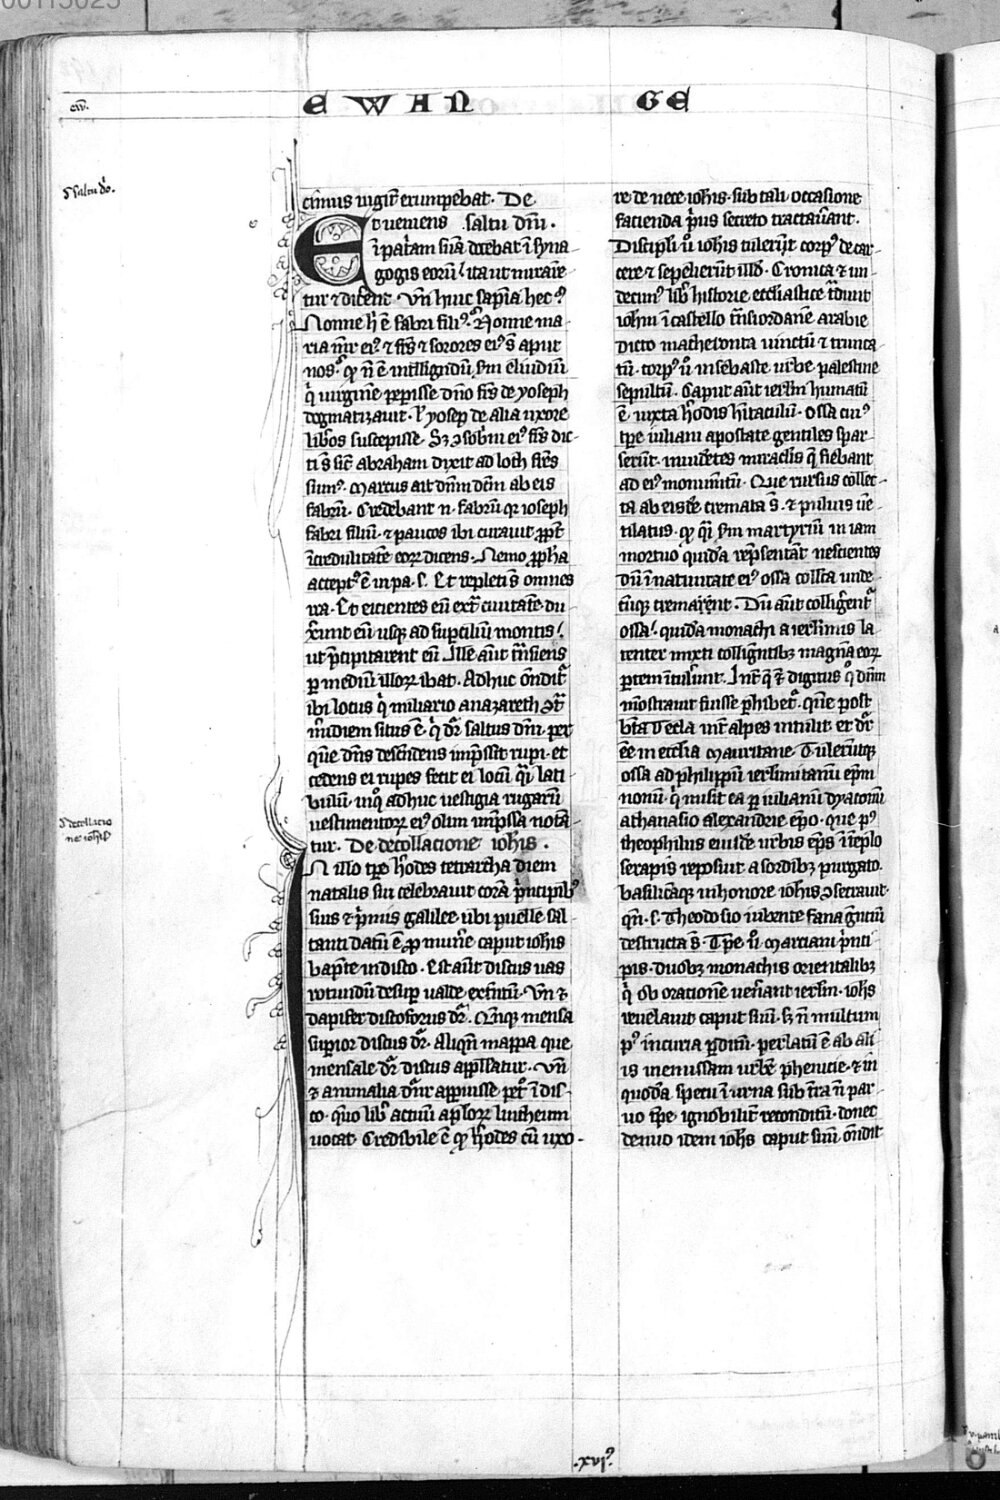 00113023
EWAN GE
ew.
de saltu dni.
cimus iugiter erumpebat. De
Et veniens saltu dni.
ī patriam suā docebat ī syna
gogis eorū ita ut mirare
tur et dicerent. Vn huic sapīa hec?
Nonne hic ē fabri filius? Nonne ma
ria mr eius et frs et sorores eius s̄ aput
nos? qd nō ē intelligendū scdm eluidiū
qui uirginē peperisse dno frs de yoseph
dogmatizauit. ul yosep de alia uxore
libos suscepisse. Sz consobrini eius frs dic
ti s̄ sic abraham dixit ad loth frēs
sumus. Marcus ait dnm dcm ab eis
fabrū. Credebant n. fabrū qr ioseph
fabri filiū. et paucos ibi curauit propt
īcredulitatē eorz dicens. Nemo propha
acceptus ē in pa. s. Et repleti s̄ omnes
ira. Et eicientes eū extra ciuitatē du
xerunt eū usqz ad supercilium montis
ut precipitarent eū. Ille aūt transiens
per mediū illorz ibat. Adhuc ōnditr
ibi locus quasi miliario a nazareth contra
meridiem situs ē. qui dr saltus dni. per
quē dns descendens impressit rupi. et
cedens ei rupes fecit ei locū quasi lati
bulū. in quo adhuc uestigia rugarū
uestimentorz eius olim impressa nota
tur. De decollacione iohis.
de decollacio
ne iohis
In illo tpe hodes tetrarcha diem
natalis sui celebrauit corā principibus
suis et primis galilee. ubi puelle sal
tanti datū ē pro munere caput iohis
bapte in disco. Est aūt discus uas
rotundū desuper ualde extentū. Vn et
dapifer discoforus dr. Cuiusqz mensa
superior discus dr. Aliqn mappa que
mensale dr discus appellatur. Vn
et animalia dnr apparuisse petro ī dis
co. quo liber actuū aplorz lintheum
uocat. Credibile ē qd hodes cū uxo-
re de nece iohis. sub tali occasione
facienda prius secreto tractauerant.
Discipli uo iohis tulerunt corpus de car-
cere et sepelierunt illud. Cronica et un
decimus liber historie ecclesiastice tradunt
iohm ī castello transiordane arabie
dicto macheronta uinctū et trunca-
tū. corpus uo in sebaste urbe palestine
sepultū. Caput aūt ierlm humatū
ē iuxta hodis habitaculū. Ossa cuius
tpe iuliani apostate gentiles spar-
serunt. inuidentes miraclis q fiebant
ad eius monumentū. Que rursus collec-
ta ab eisdem cremata s̄. et puluis uē
tilatus. qd quasi scdm martyriū in iam
mortuo quidā representant nescientes
dū ī natiuitate eius ossa collecta unde
cūqz cremarent. Dū aūt colligerentur
ossa. quidā monachi a ierlimis la
tenter mixti colligentibz magnā eorz
partem ītulerunt. Int que et digitus quo dnm
mostrauit fuisse perhibetur. quē post
bta Tecla inter alpes intulit. et dr
eē in ecclia mauritane. Tulerūtqz
ossa ad philippū ierlimitanū epm
nonū. qui misit ea per iulianū dyaconū
athanasio alexandrie epo. que post
theophilus eiusdē urbis eps ī templo
serapis reposuit a sordibz purgato.
basilicāqz in honore iohis consecrauit.
qn. s. Theodosio iubente fana gentiū
destructa s̄. Tpe uo Marciani princi
pis. duobz monachis orientalibz
qui ob orationē uenerant ierlm. iohs
reuelauit caput suū. sz nō multum
post incuria perditū. perlatū ē ab ali
is in emissam urbē phenicie. et in
quodā specu ī urna sub terra nō par
uo tpe ignobiliter reconditū. donec
denuo idem iohs caput suū ōndit
.xvi⁹.